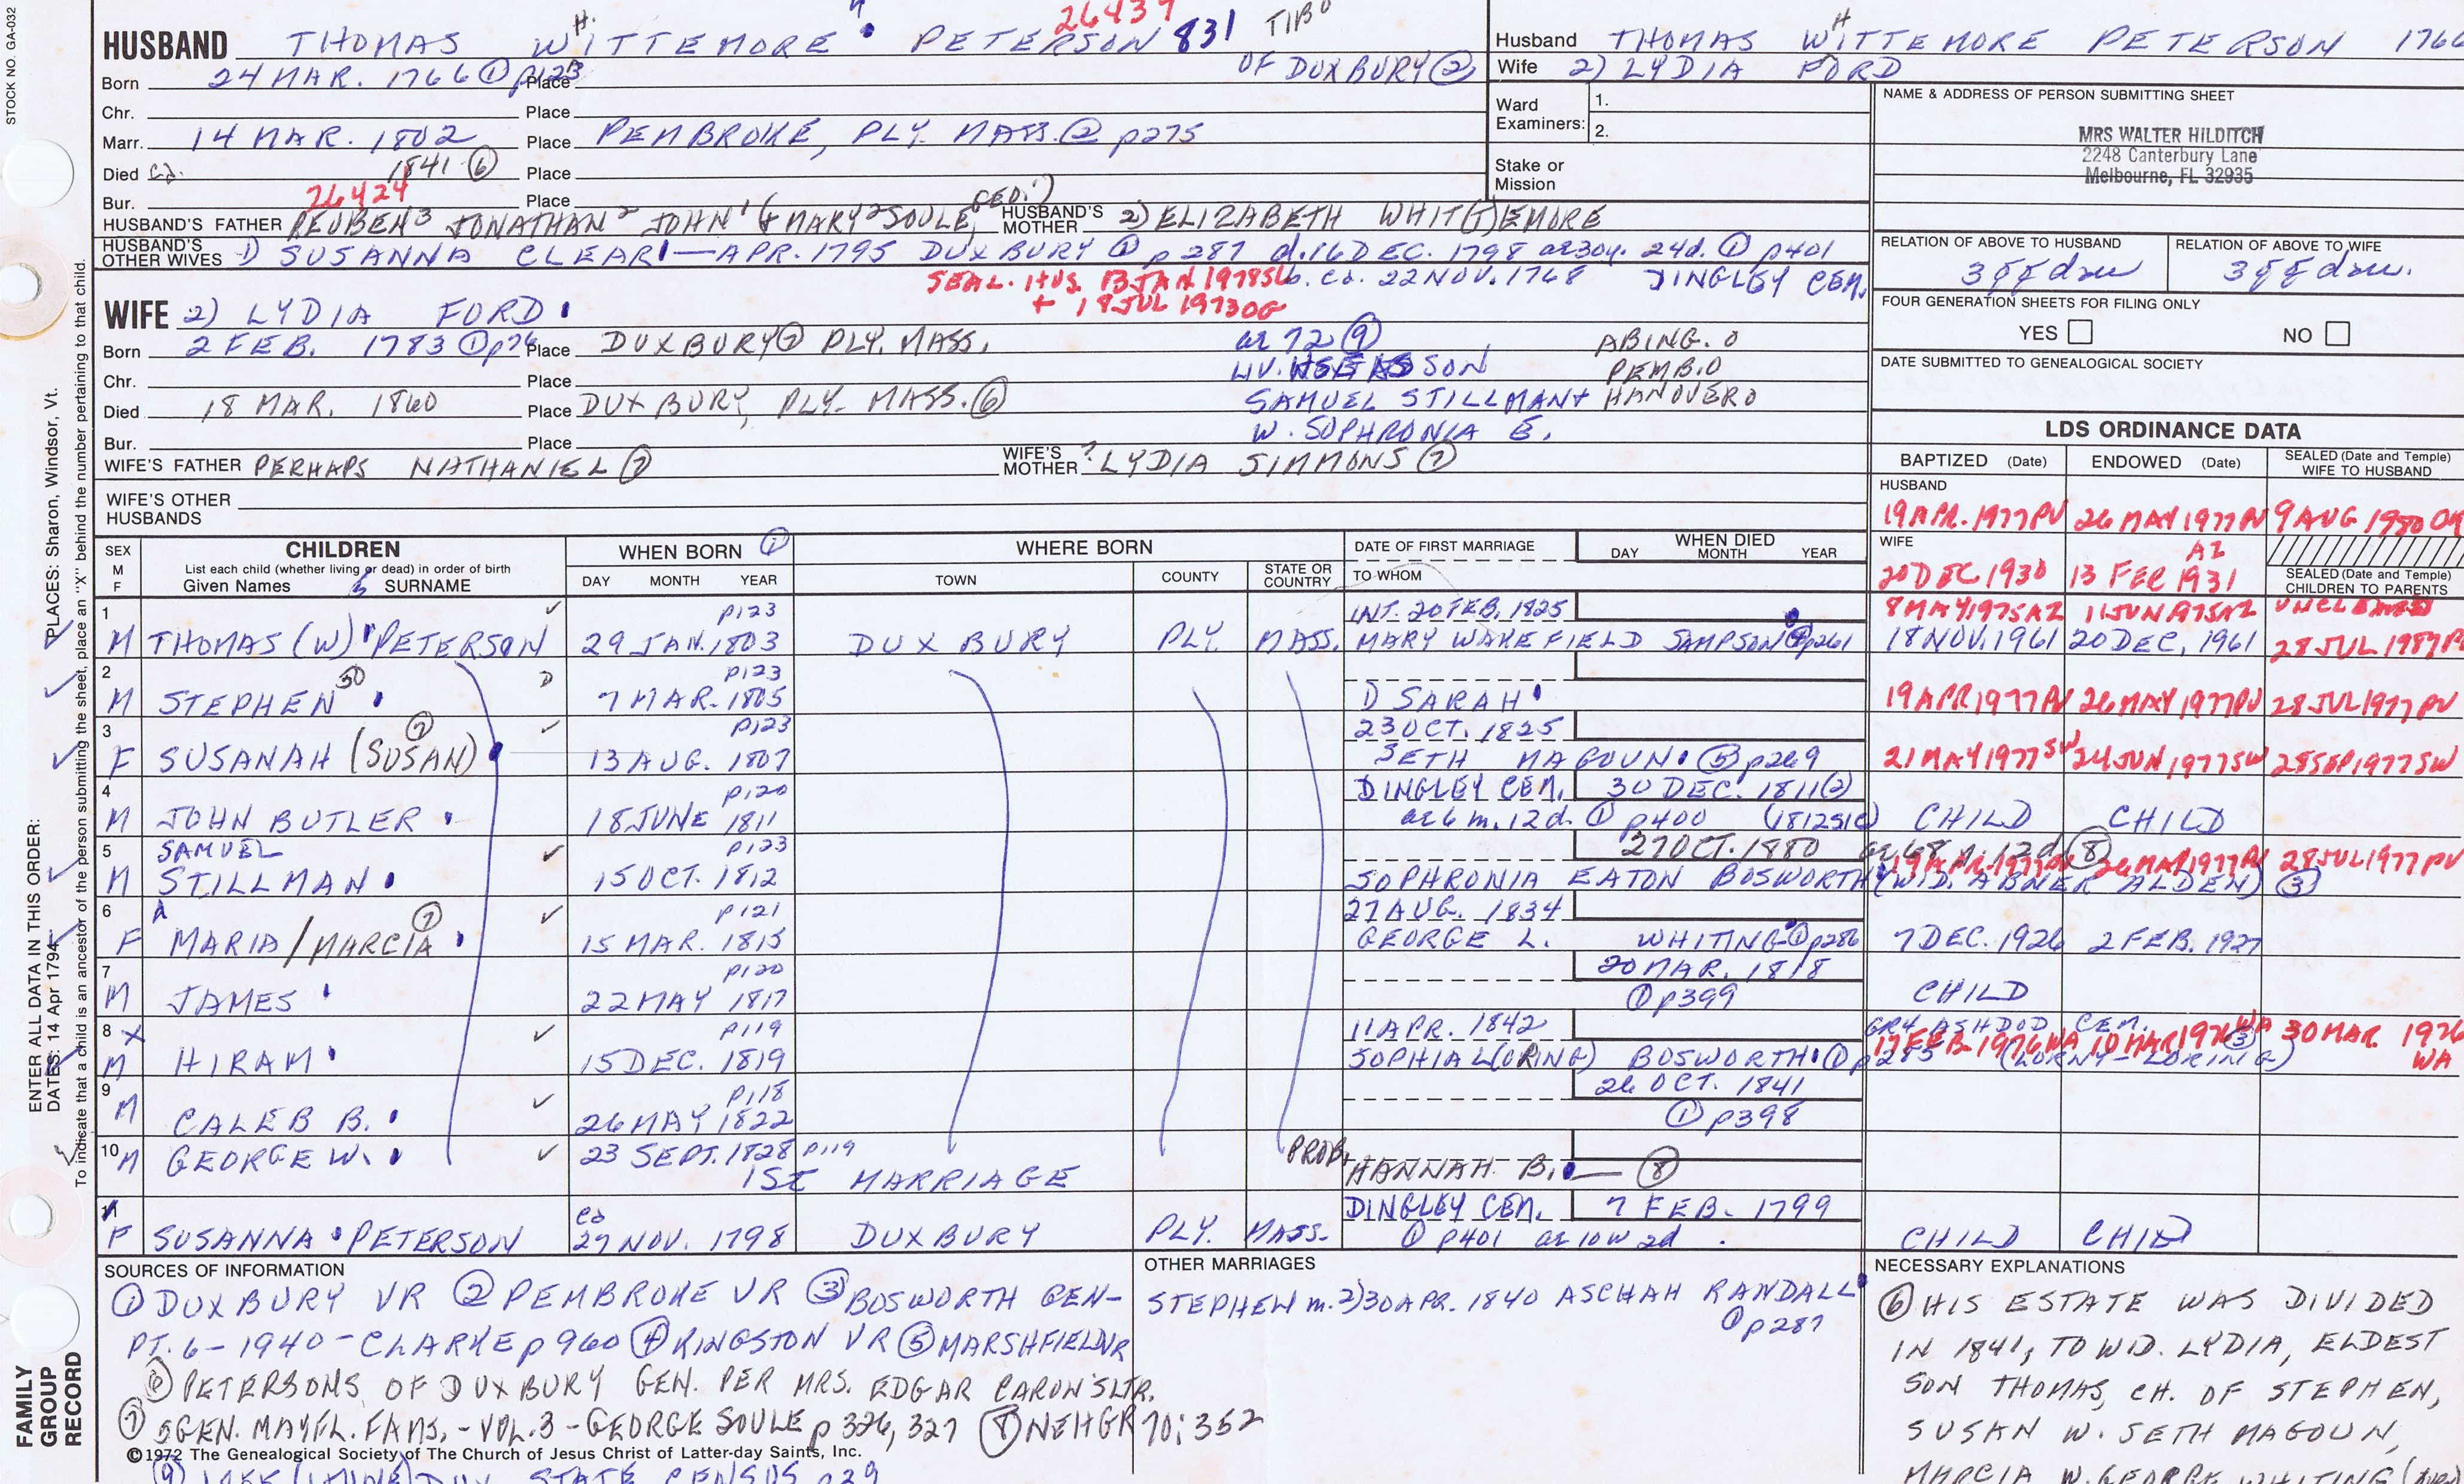 STOCK NO. GA-032
26437
HUSBAND THOMAS WHITTEMORE PETERSON 831 TIBO
OF DUXBURY ②
Born 24 MAR. 1766 ① p123 Place
Chr. Place
Marr. 14 MAR. 1802 Place PEMBROKE, PLY. MASS. ② p275
Died 1841 ⑥ Place
26424
Bur. Place
HUSBAND'S FATHER REUBEN 3 JONATHAN 2 JOHN 1 (+ MARY 2 SOULE, HUSBAND'S MOTHER 2) ELIZABETH WHIT(T)EMORE
HUSBAND'S OTHER WIVES 1) SUSANNA CLEAR — APR. 1795 DUXBURY ① p 287 d. 16 DEC. 1798 ae 30y. 24d. ① p401
SEAL. HUS. 13 JAN 1978SL b. ca. 22 NOV. 1768 DINGLEY CEM.
+ 18 JUL 1973OG
WIFE 2) LYDIA FORD
Born 2 FEB. 1783 ① p76 Place DUXBURY ⑦ PLY. MASS.
ae 72 ⑨ ABING. O
Chr. Place
SON PEMB. O
Died 18 MAR. 1860 Place DUXBURY, PLY. MASS. ⑥
SAMUEL STILLMAN + HANOVER O
W. SOPHRONIA E.
Bur. Place
WIFE'S FATHER PERHAPS NATHANIEL ⑦ WIFE'S MOTHER ? LYDIA SIMMONS ⑦
WIFE'S OTHER HUSBANDS
Husband THOMAS WHITTEMORE PETERSON 1766
Wife 2) LYDIA FORD
Ward Examiners: 1.
2.
Stake or Mission
NAME & ADDRESS OF PERSON SUBMITTING SHEET
MRS WALTER HILDITCH
2248 Canterbury Lane
Melbourne, FL 32935
RELATION OF ABOVE TO HUSBAND RELATION OF ABOVE TO WIFE
FOUR GENERATION SHEETS FOR FILING ONLY
YES NO
DATE SUBMITTED TO GENEALOGICAL SOCIETY
LDS ORDINANCE DATA
BAPTIZED (Date) ENDOWED (Date) SEALED (Date and Temple) WIFE TO HUSBAND
HUSBAND
19 APR. 1977 PV 26 MAY 1977 PV 9 AUG 1980
WIFE
20 DEC 1930 13 FEB 1931 AZ
SEALED (Date and Temple) CHILDREN TO PARENTS
SEX M F CHILDREN WHEN BORN ① WHERE BORN DATE OF FIRST MARRIAGE WHEN DIED DAY MONTH YEAR
List each child (whether living or dead) in order of birth
Given Names SURNAME DAY MONTH YEAR TOWN COUNTY STATE OR COUNTRY TO WHOM
1 p123 INT. 20 FEB. 1825 8 MAY 1975AZ 11 JUN 1975AZ
M THOMAS (W) PETERSON 29 JAN. 1803 DUXBURY PLY. MASS. MARY WAKEFIELD SAMPSON p261 18 NOV. 1961 20 DEC. 1961 28 JUL 1987
2 p123
M STEPHEN 7 MAR. 1805 1) SARAH 19 APR 1977 PV 26 MAY 1977 PV 28 JUL 1977 PV
3 p123 23 OCT. 1825
F SUSANAH (SUSAN) ⑦ 13 AUG. 1807 SETH MAGOUN ⑤ p269 21 MAY 1977 SW 24 JUN 1977 SW 28 SEP 1977 SW
4 p120 DINGLEY CEM. 30 DEC. 1811 ②
M JOHN BUTLER 18 JUNE 1811 ae 6 m. 12 d. ① p400 (1812 SIC) CHILD CHILD
5 SAMUEL p123 27 OCT. 1880 ae 68 12d ⑧
M STILLMAN 15 OCT. 1812 SOPHRONIA EATON BOSWORTH (WID. ABNER ALDEN) ③ 19 APR 1977 PV 26 MAY 1977 PV 28 JUL 1977 PV
6 p121 27 AUG. 1834
F MARIA/MARCIA ⑦ 15 MAR. 1815 GEORGE L. WHITING ① p286 7 DEC. 1926 2 FEB. 1927
7 p120 20 MAR. 1818
M JAMES 22 MAY 1817 ① p399 CHILD
8 X p119 11 APR. 1842 ASHDOD CEM.
M HIRAM 15 DEC. 1819 SOPHIA L(ORING) BOSWORTH ① p285 (LORNY - LORING) ③ 17 FEB 1976 WA 10 MAR 1976 WA 30 MAR 1976 WA
9 p118 26 OCT. 1841
M CALEB B. 26 MAY 1822 ① p398
10 M GEORGE W. 23 SEPT. 1828 p119 PROB. HANNAH B. — ⑧
1ST MARRIAGE
11 ca DINGLEY CEM. 7 FEB. 1799
F SUSANNA PETERSON 27 NOV. 1798 DUXBURY PLY. MASS. ① p401 ae 10w 2d CHILD CHILD
SOURCES OF INFORMATION
① DUXBURY VR ② PEMBROKE VR ③ BOSWORTH GEN-
PT. 6 - 1940 - CLARKE p 960 ④ KINGSTON VR ⑤ MARSHFIELD VR
⑥ PETERSONS OF DUXBURY GEN. PER MRS. EDGAR CARON'S LTR.
⑦ 5 GEN. MAYFL. FAMS. - VOL. 3 - GEORGE SOULE p 326, 327 ⑧ NEHGR 70: 352
©1972 The Genealogical Society of The Church of Jesus Christ of Latter-day Saints, Inc.
⑨ 1855 (JUNE) DUX. STATE CENSUS p29
OTHER MARRIAGES
STEPHEN m. 2) 30 APR. 1840 ASCHAH RANDALL
① p287
NECESSARY EXPLANATIONS
⑥ HIS ESTATE WAS DIVIDED
IN 1841, TO WID. LYDIA, ELDEST
SON THOMAS, CH. OF STEPHEN,
SUSAN W. SETH MAGOUN,
MARCIA W. GEORGE WHITING
ENTER ALL DATA IN THIS ORDER:
DATES: 14 Apr 1794 PLACES: Sharon, Windsor, Vt.
To indicate that a child is an ancestor of the person submitting the sheet, place an "X" behind the number pertaining to that child.
FAMILY
GROUP
RECORD